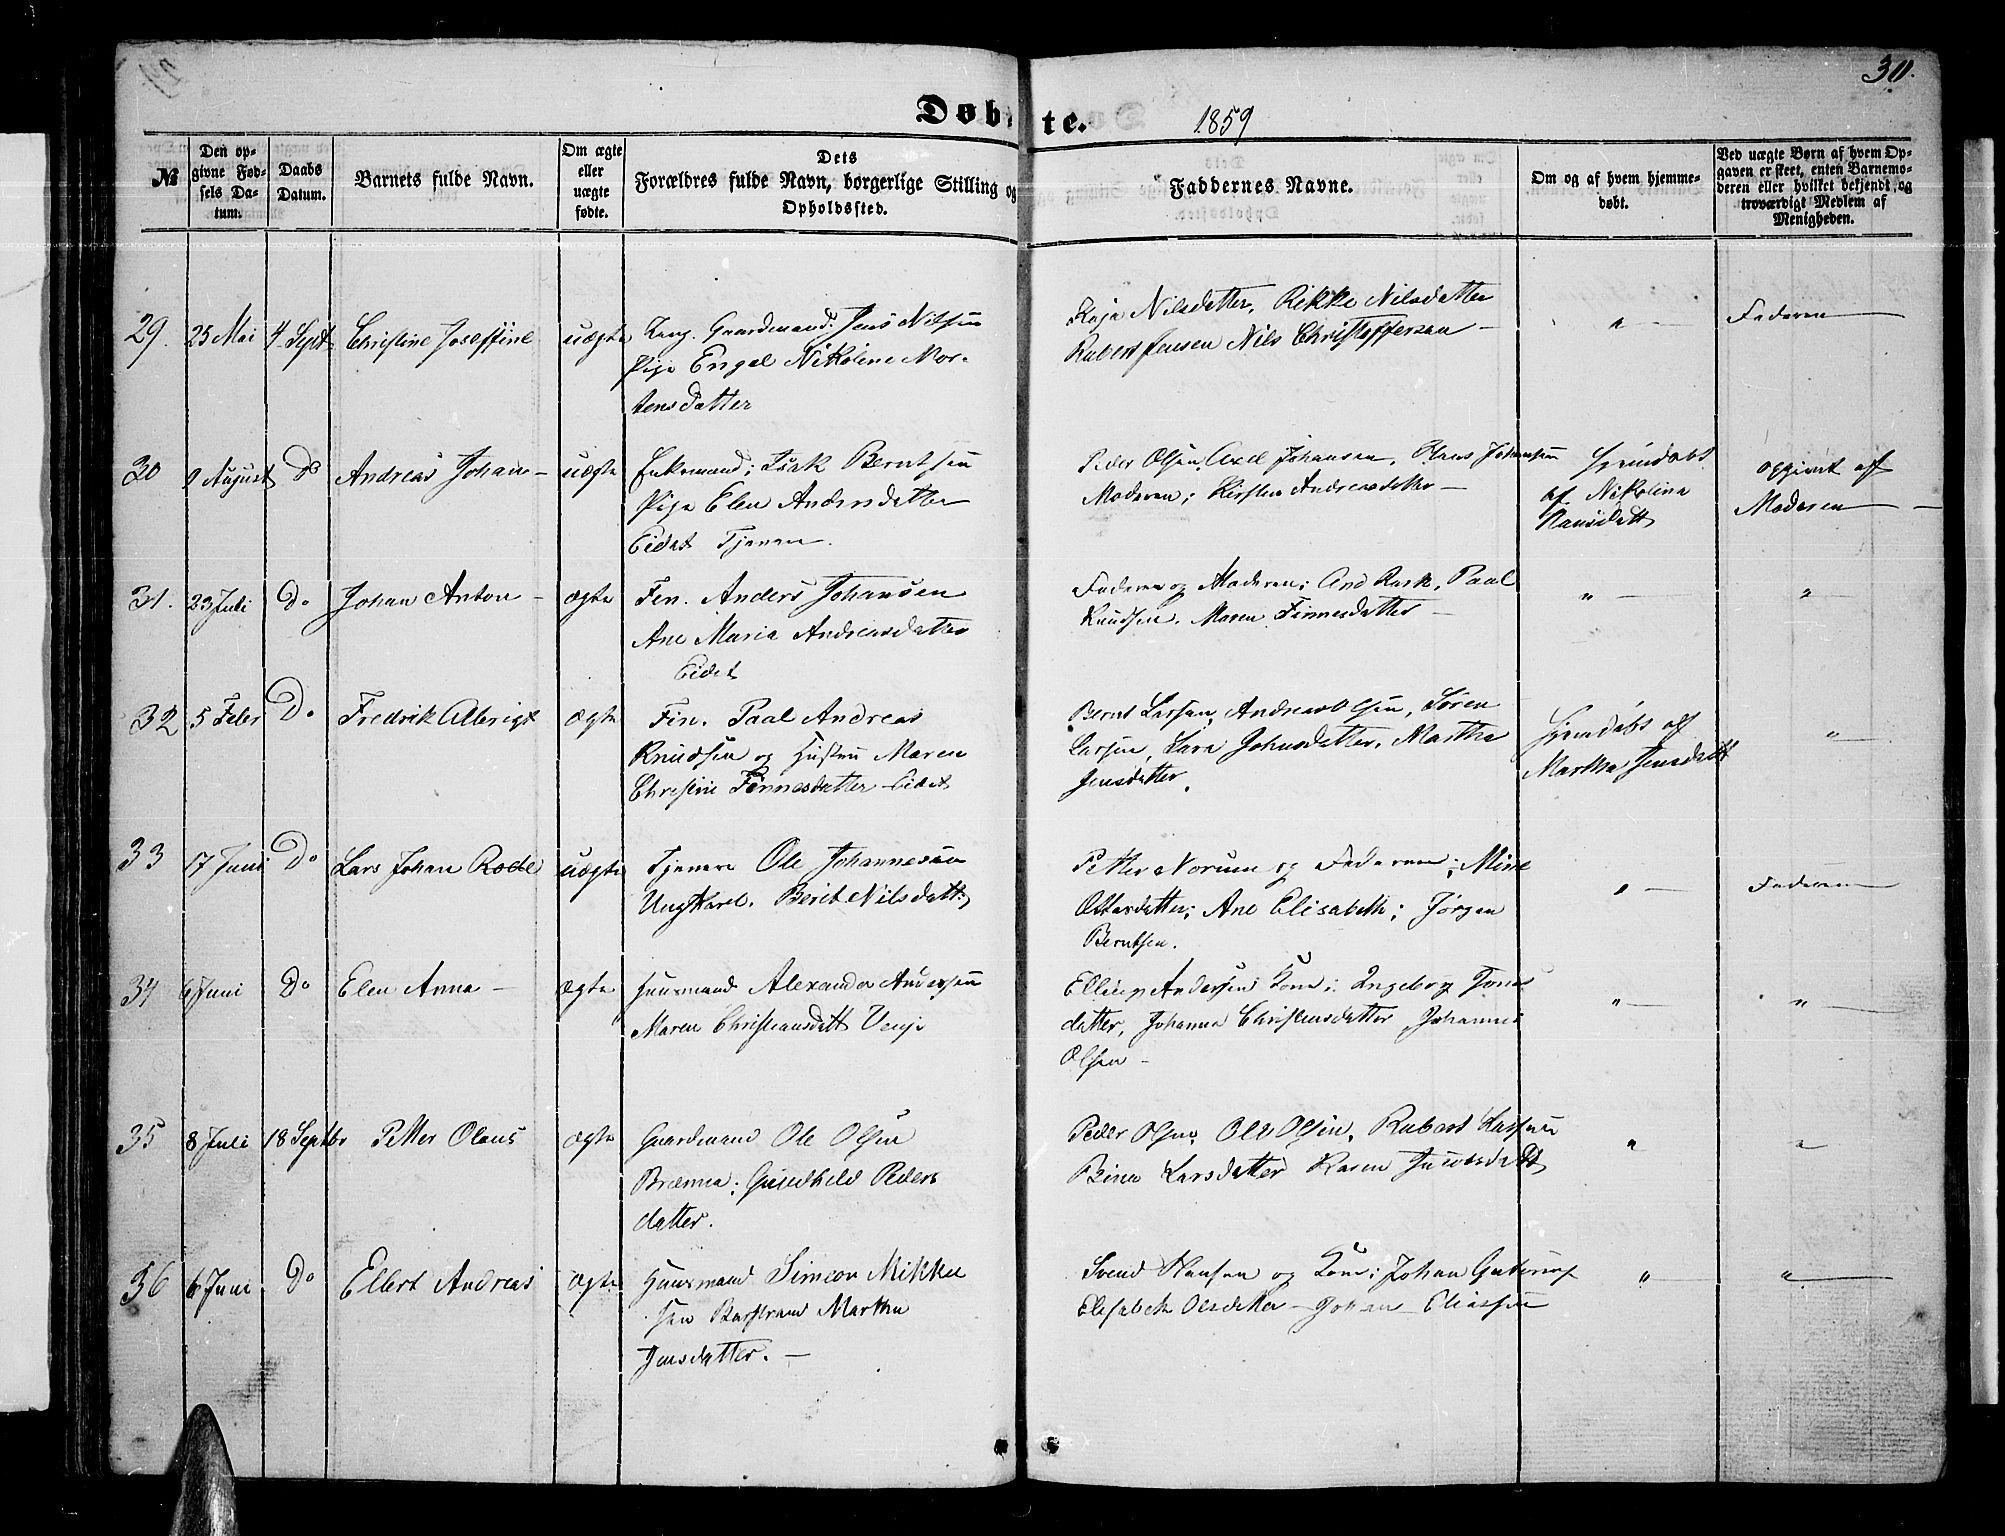 30.
Døbte.
1859
№
Den op-
givne Fød-
sels Da-
tum.
Daabs
Datum.
Barnets fulde Navn.
Om ægte
eller
uægte
fødte.
Dets
Forældres fulde Navn, borgerlige Stilling og
Opholdssted.
Faddernes Navne.
Om og af hvem hjemme-
døbt.
Ved uægte Børn af hvem Op-
gaven er skeet, enten Barnemo-
deren eller hvilket bekjendt og
troværdigt Medlem af
Menigheden.
29. 25 Mai 4 Sept Christine Joseffine uægte
Gaardmand. Jens Nilsen
Pige Engel Nikoline Mor-
tensdatter
Kaja Nilsdatter, Rikke Nilsdatter
Rubert Jensen Nils Christoffersen —
" —
Faderen
30 9 August Do Andreas Johan — uægte
Enkemand; Isak Berntsen
Pige Elen Andersdatter
Eidet Tjener.
Peder Olsen, Axel Johansen, Hans Johansen
Moderen; Kirsten Andreasdatter —
Hjemdøbt
af Nikolina
Hansdatt
opgivet aff
Moderen —
31. 23 Juli Do Johan Anton — ægte
Fin. Anders Johansen
Ane Maria Andreasdatter
Eidet
Faderen og Moderen; And Rask, Paal
Knudsen, Maren Finnesdatter —
" —
" —
32 5 Febr Do Fredrik Albrigt ægte
Fin. Paal Andreas
Knudsen og Hustru Maren
Christine Finnesdatter Eidet
Bernt Larsen, Andreas Olsen, Søren
Larsen, Lava Johnsdatter, Martha
Jensdatter.
Hjemdøbt aff
Martha Jensdatt
" —
33 17 Juni Do Lars Johan Rode uægte
Tjenere Ole Johannesen
Ungkarl. Berit Nilsdatt:
Petter Norum og Faderen; Mine
Ottesdatter; Ane Elisabeth; Jørgen
Berntsen.
" —
Faderen
34 6 Juni Do Elen Anna — ægte
Huusmand Alexander Andersen
Maren Christiansdatt Venje
Elling Andersen Kone; Ingeborg Jons
datter, Johanna Christensdatter Johannes
Olsen —
" —
" —
35 8 Juli 18 Septbr Petter Olaus ægte
Gaardmand Ole Olsen
Brænna; Gundhild Peders
datter.
Peder Olsen, Ole Olsen, Rubert Larsen
Bine Larsdatter Karen Jacobsdatt
"
"
36 6 Juni Do Ellert Andreas ægte
Huusmand Simeon Mikkel
sen Barstrand Martha
Jensdatter. —
Svend Hansen og Kone; Johan
Elisabeth Olsdatter — Johan Eliassen
" —
" —